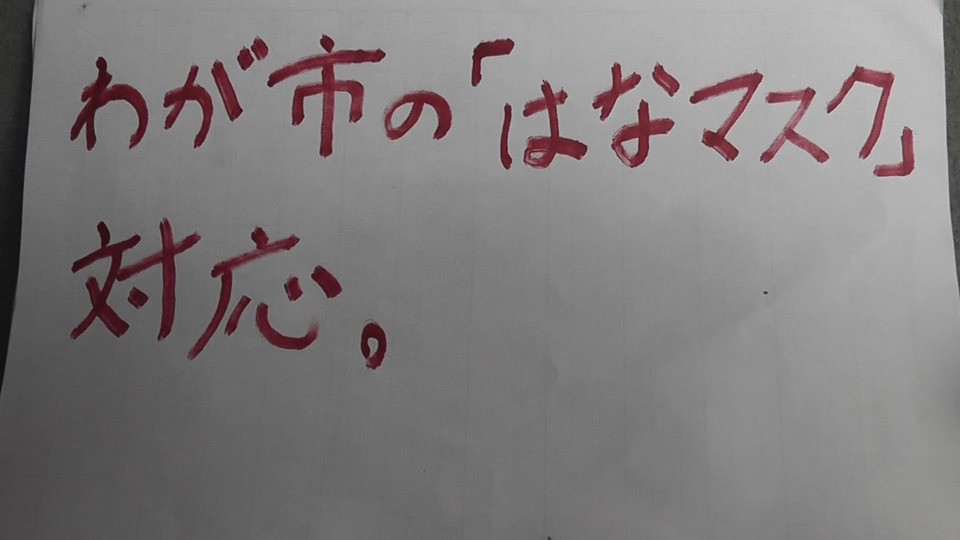 わが市の「はなマスク」
対応。